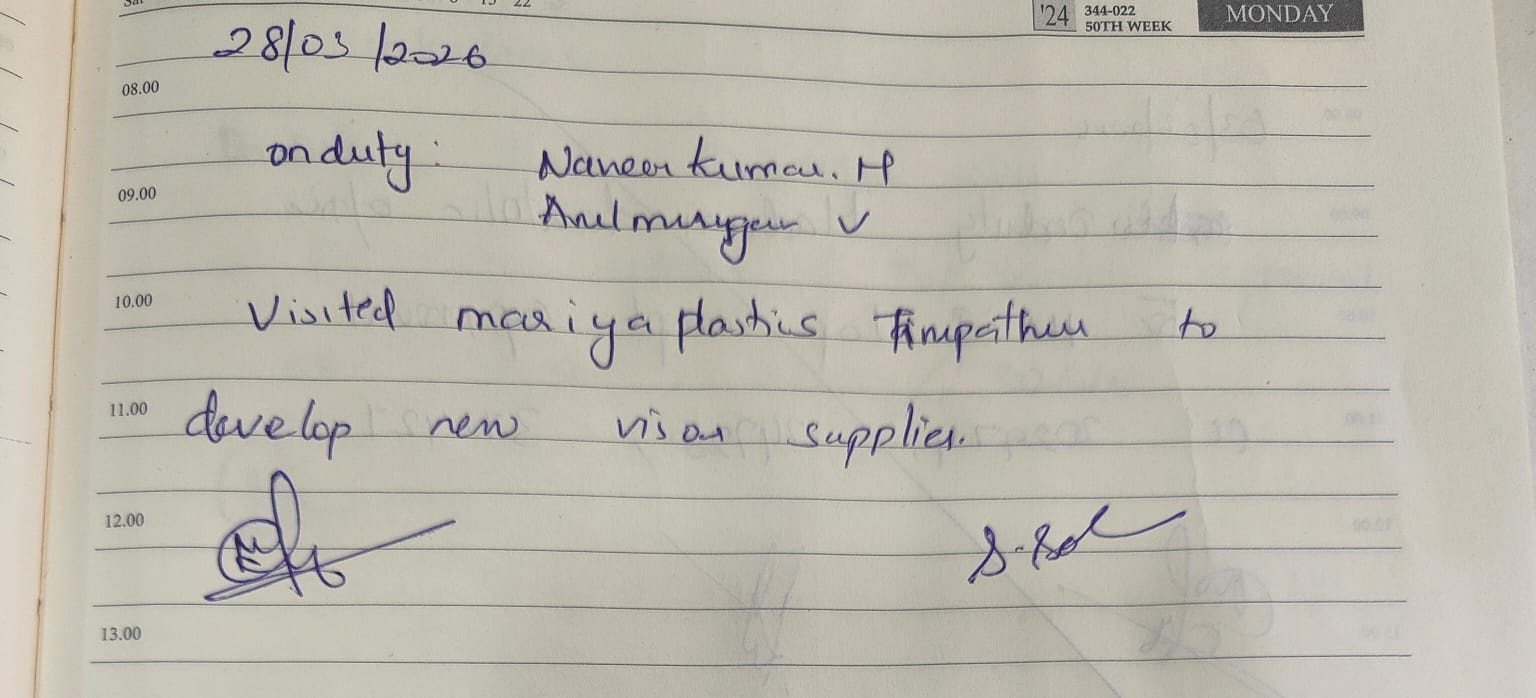 Sat
15 22
'24 344-022
50TH WEEK
MONDAY
28/03/2026
08.00
onduty: Naneen kumar. H
09.00
Arulmurugan V
10.00
Visited mariya plastics to
11.00
develop new visor supplier.
12.00
13.00